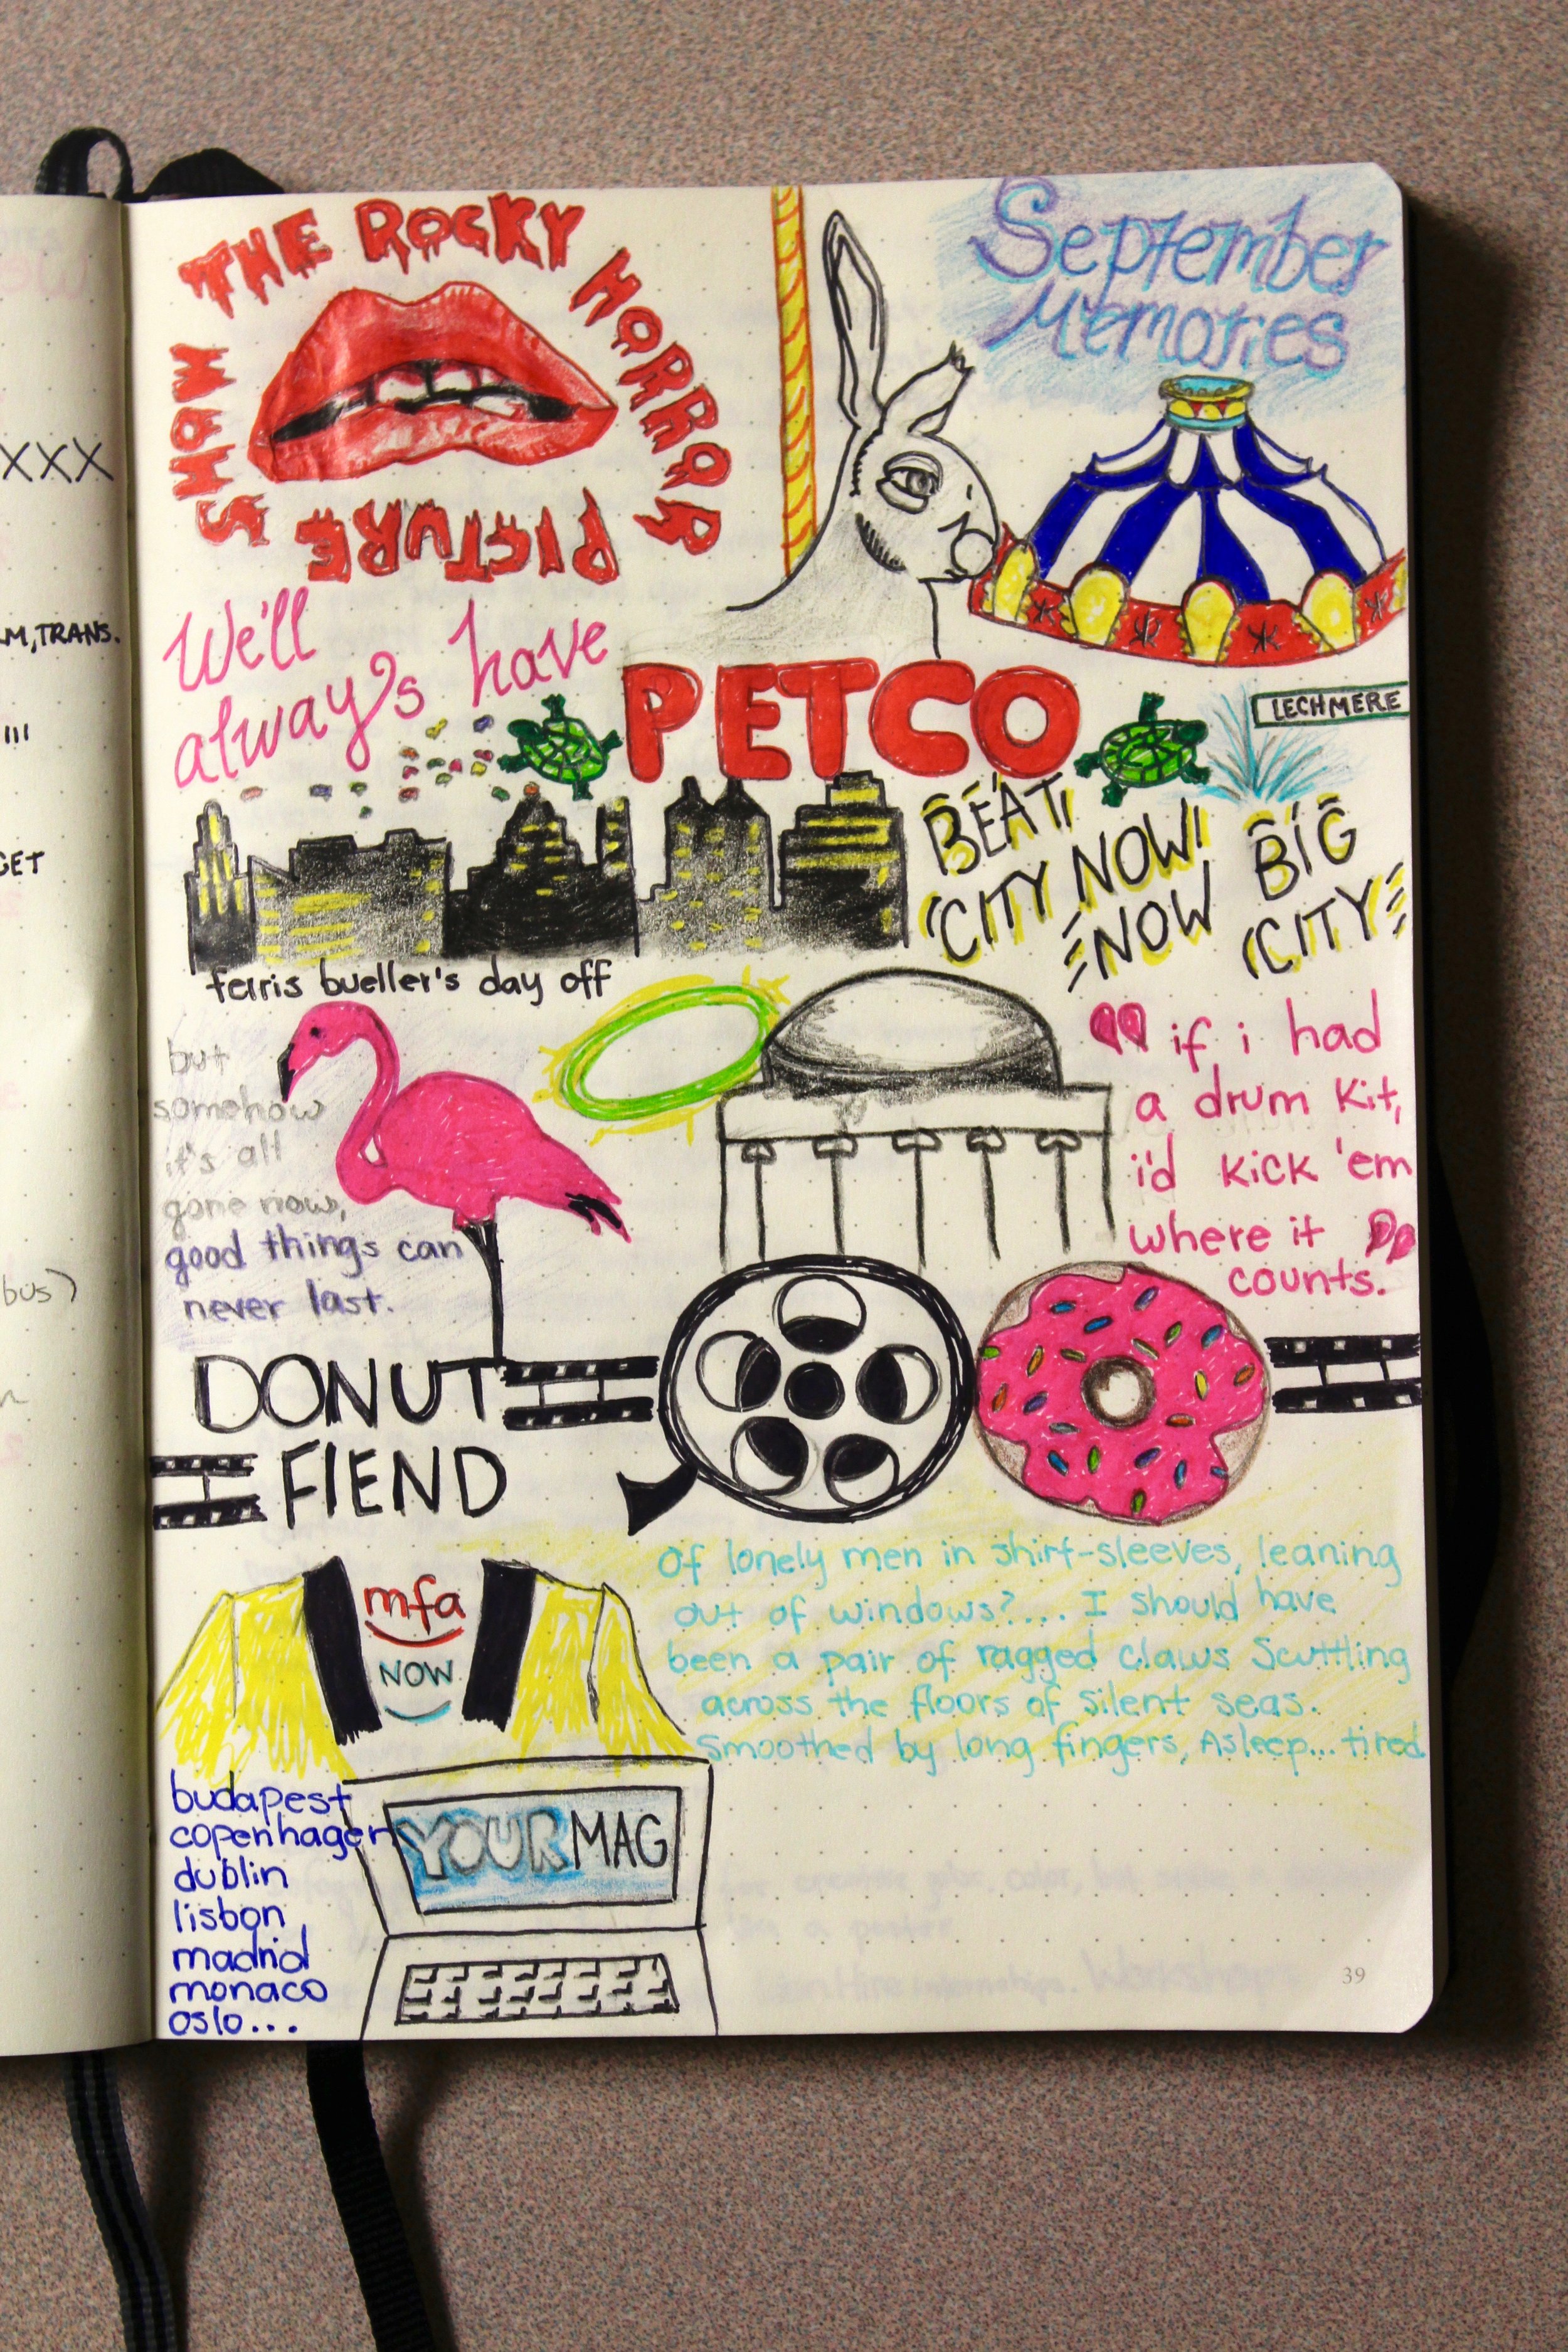 XXX
M, TRANS.
!!!
GET
bus)
THE ROCKY HORROR
PICTURE
SHOW
September
Memories
We'll
always have
PETCO
LECHMERE
BEAT
CITY NOW!
NOW BIG
CITY
ferris bueller's day off
but
somehow
it's all
gone now,
good things can
never last.
if i had
a drum kit,
i'd kick 'em
where it
counts.
DONUT
FIEND
mfa
NOW
of lonely men in shirt-sleeves, leaning
out of windows?... I should have
been a pair of ragged claws Scuttling
across the floors of silent seas.
Smoothed by long fingers, Asleep... tired
budapest
copenhagen
dublin
lisbon
madrid
monaco
oslo...
YOUR MAG
39